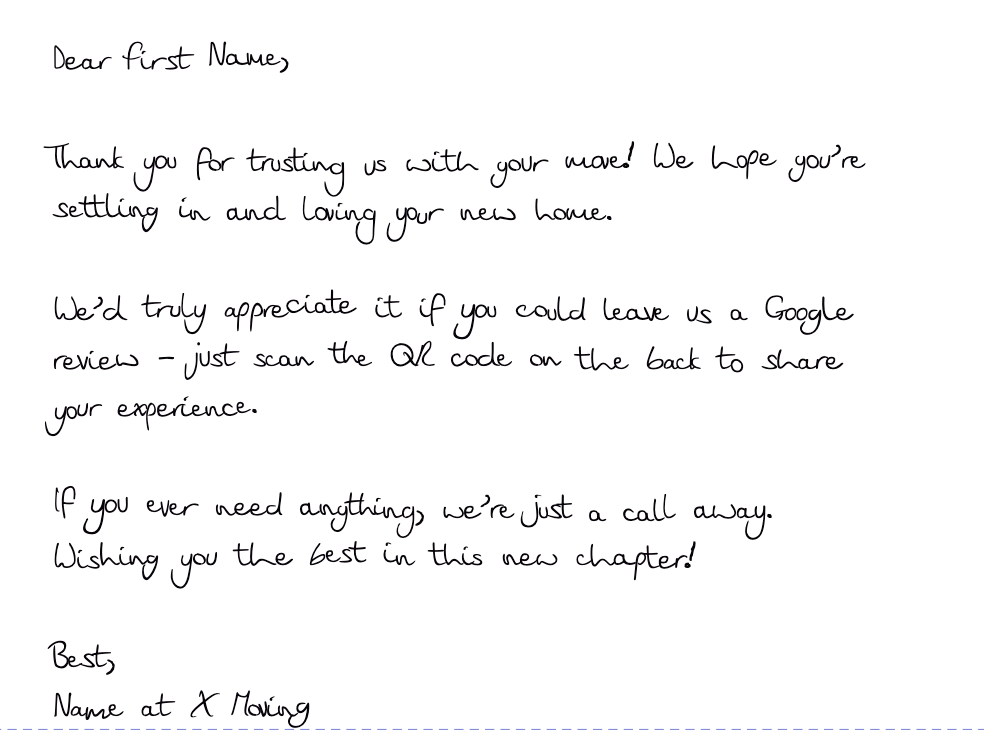 Dear First Name,
Thank you for trusting us with your move! We hope you're
settling in and loving your new home.
We'd truly appreciate it if you could leave us a Google
review – just scan the QR code on the back to share
your experience.
If you ever need anything, we're just a call away.
Wishing you the best in this new chapter!
Best,
Name at X Moving